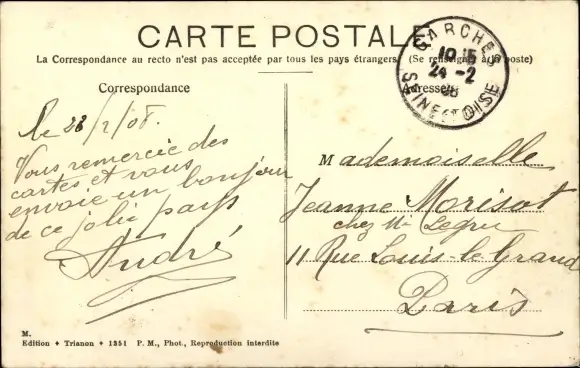 CARTE POSTALE
La Correspondance au recto n'est pas acceptée par tous les pays étrangers (Se renseigner à la poste)
Correspondance
Adresse
GARCHES
10 15
24 -2
08
SEINE ET OISE
le 23/2/08.
Vous remercie des
cartes et vous
envoie un bonjour
de ce joli pays
André
Mademoiselle
Jeanne Morisot
chez Mr Legru
11 Rue Louis-le-Grand
Paris
M.
Edition ♦ Trianon ♦ 1351 P. M., Phot., Reproduction interdite